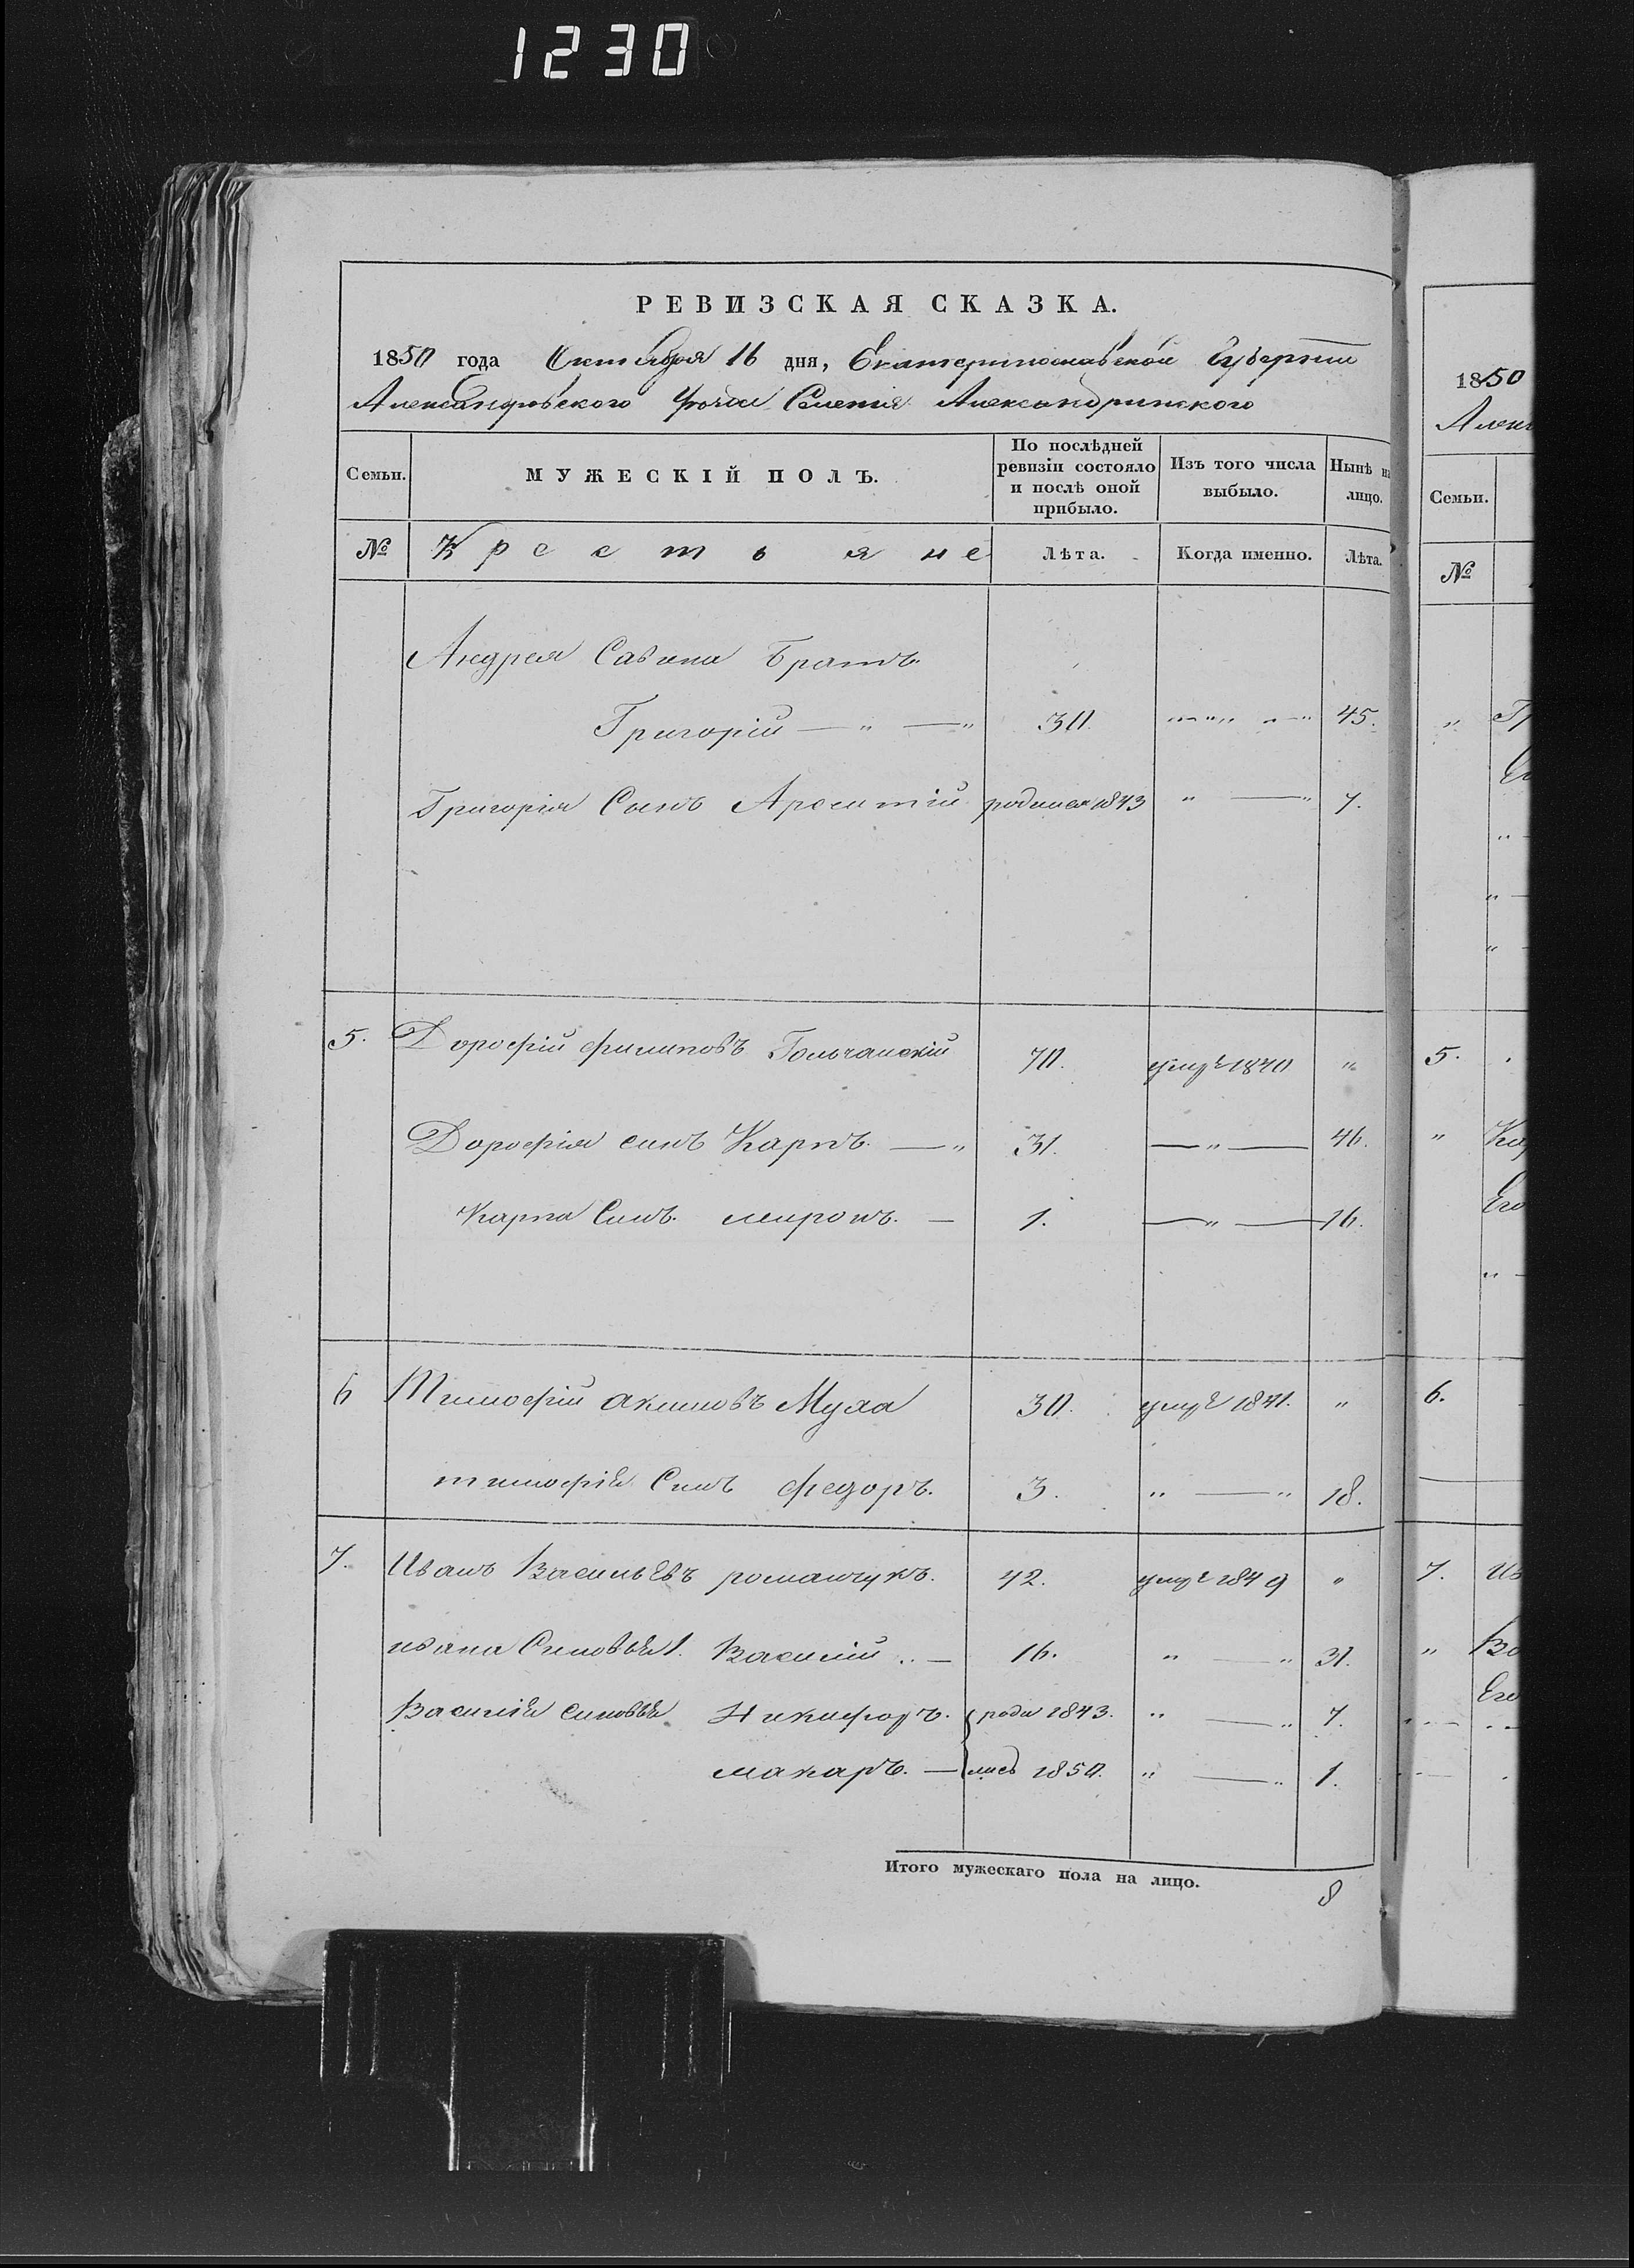 1230
РЕВИЗСКАЯ СКАЗКА.
1850 года Октября 16 дня, Екатеринославской Губернии
Александровского Уезда Селения Александринского
Семьи. МУЖЕСКІЙ ПОЛЪ. По послѣдней ревизіи состояло и послѣ оной прибыло. Изъ того числа выбыло. Нынѣ на лицо.
№ Крестьяне Лѣта. Когда именно. Лѣта.
Андрея Савина Братъ
Григорій — " — " 30. 45.
Григорія Сынъ Арсентій родился 1843 " — " 7.
5. Дорофій филиповъ Гольчанскій 70. умрѣ 1840 "
Дорофія синъ Карпъ — " 31. — " — 46.
Карпа Синъ миронъ. — 1. — " — 16.
6 Тимофій акимовъ Муха 30. умрѣ 1841. "
тимофія Синъ федоръ. 3. " — " 18.
7. Иванъ Васильевъ романчукъ. 42. умрѣ 1849 "
ивана Синовья 1. Василій " — 16. " — " 31.
Василія синовья Никифоръ. роди 1843. " — " 7.
макаръ. — лись 1850. " — " 1.
Итого мужескаго пола на лицо. 8
1850
Алек
Семьи.
№
" Гр
5.
" Кар
Его
6.
7. Ив
" Ва
Его